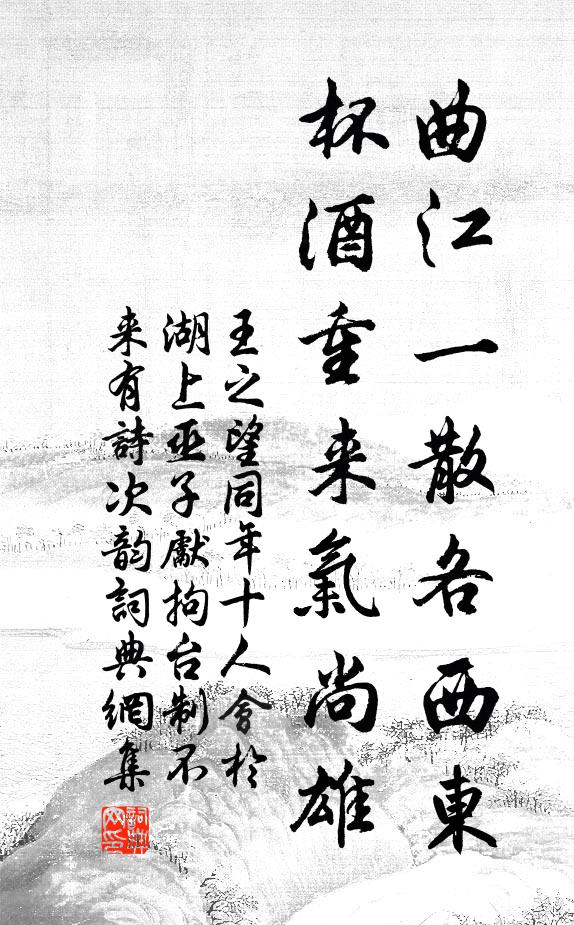 曲江一散各西東
杯酒重来氣尚雄
王之望同年十人會於
湖上巫子獻拘台制不
来有詩次韵詞典網集